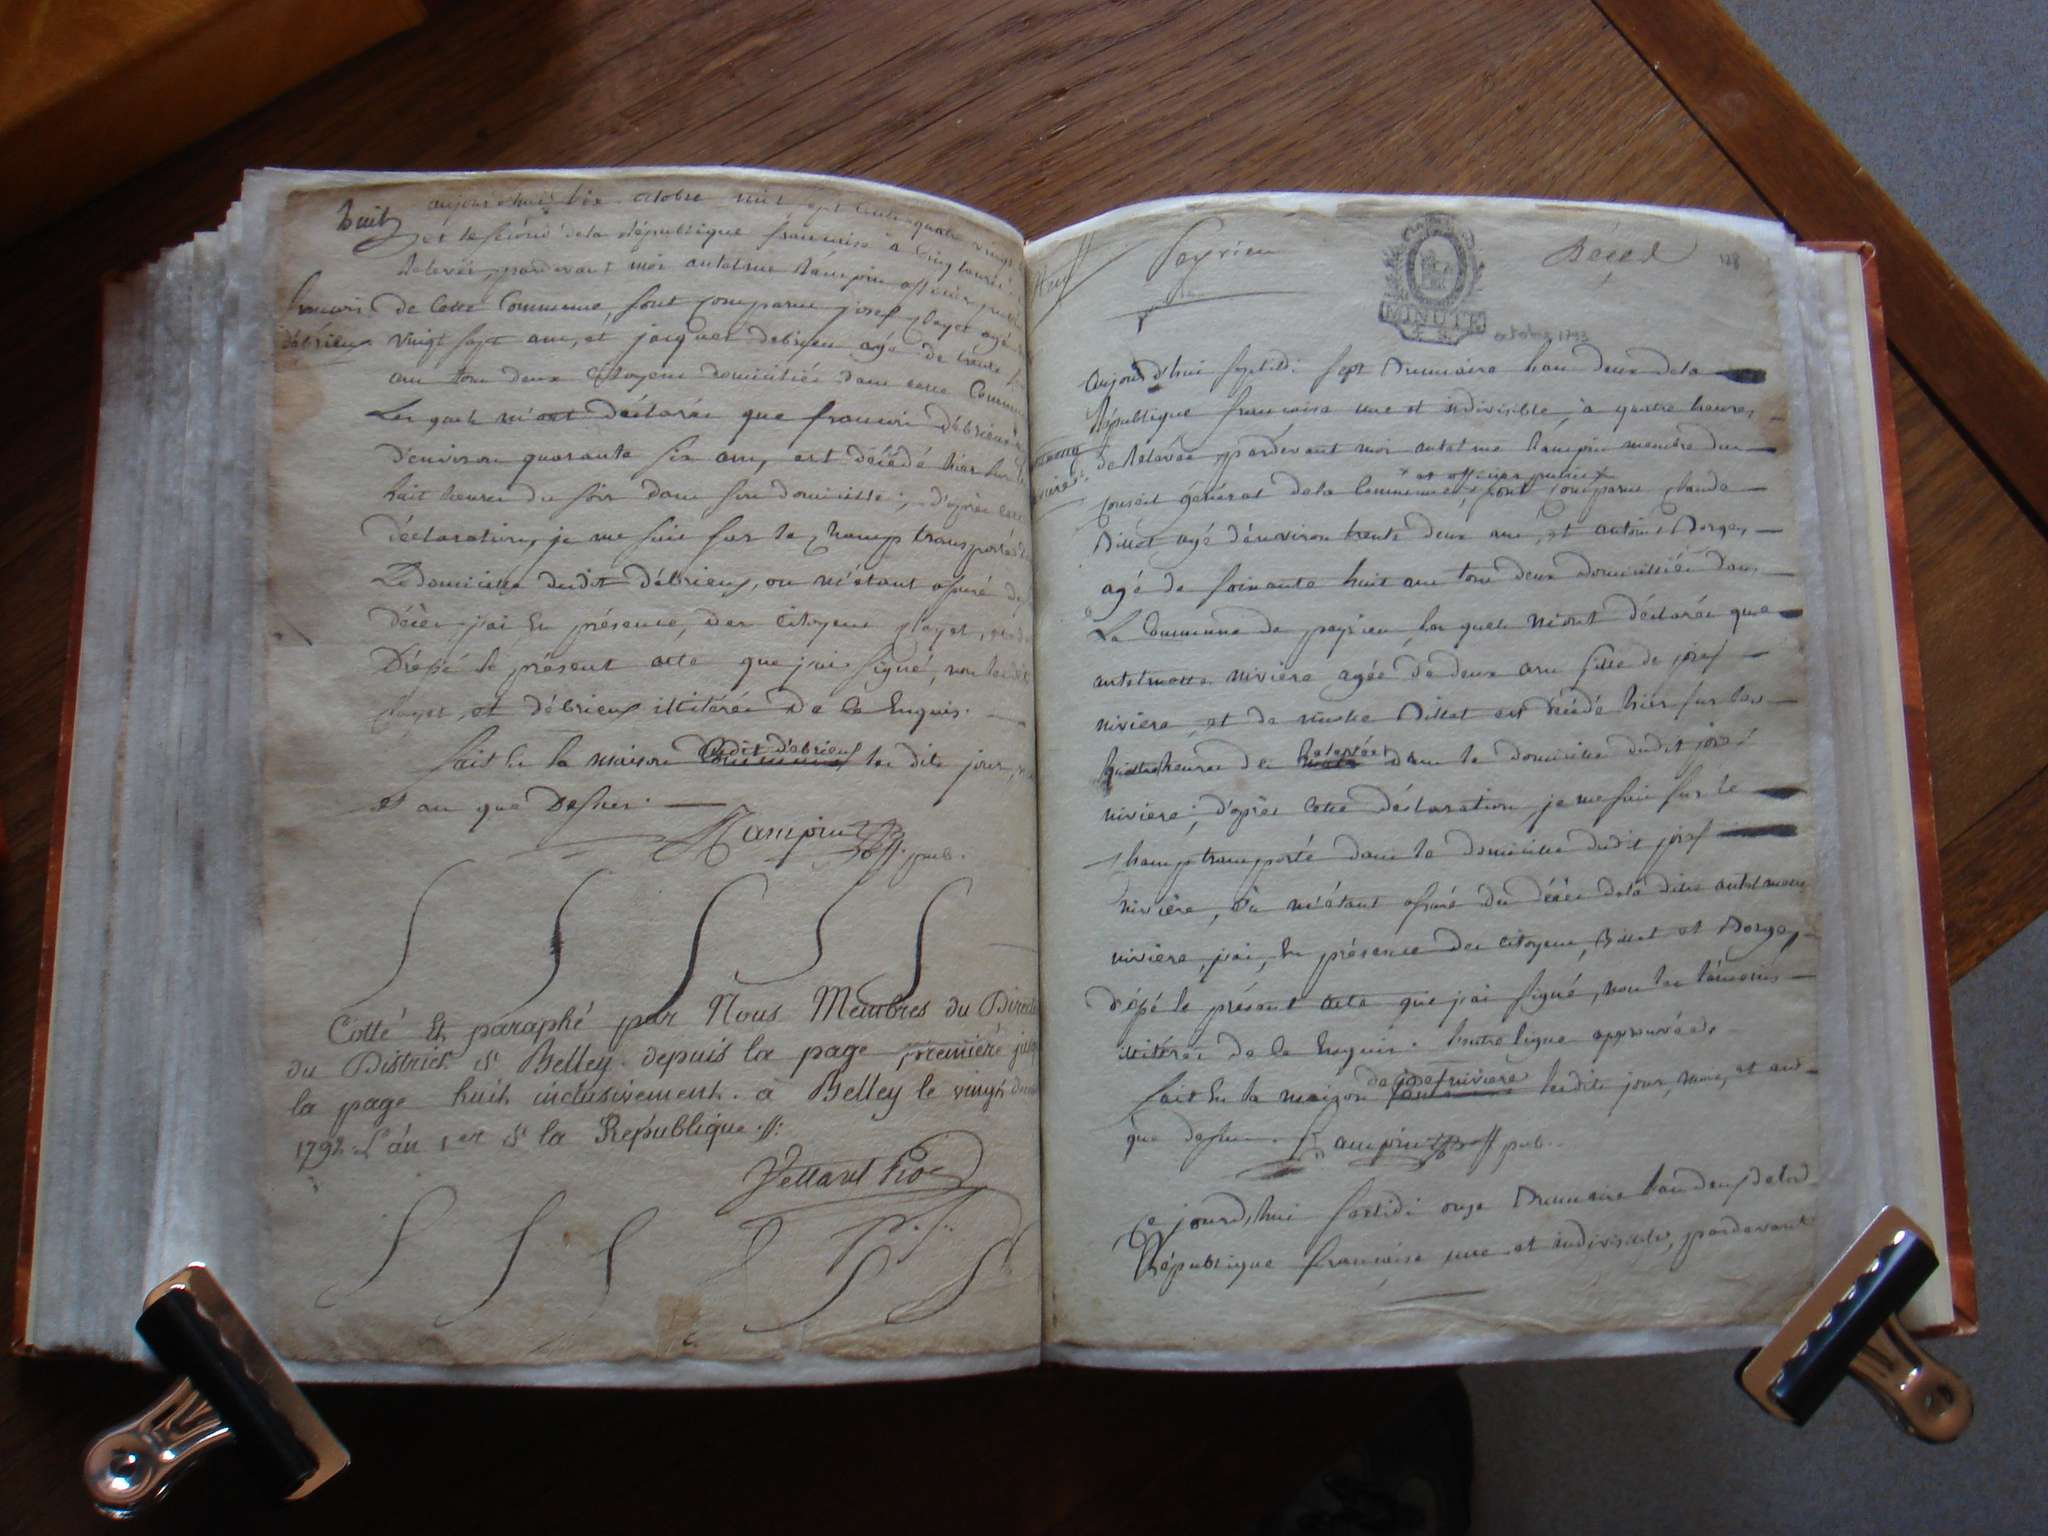 huit
aujourd'hui dix octobre mil sept cent quatre vingt
et le second de la république francaise à cinq heures
de relevée, pardevant moi antelme Rampin officier public
francois débrieux
de cette Commune, sont comparu josef clayet agé
vingt sept ans, et jacques debrieux agé de trente
ans tous deux Citoyens domiciliés dans cette Commune
Les quels m'ont déclarés que francois débrieux
d'environ quarante six ans, est décédé hier sur les
huit heures du soir dans son domicille; d'après cette
déclaration, je me suis sur le champ transporté
Le domicille dudit débrieux, ou m'étant assuré du
décès j'ai en présence, des Citoyens clayet,
Dréssé le présent acte que j'ai signé, non les dits
clayet, et débrieux illitérés De ce Enquis.
fait en la maison Commune dudit débrieux les dits jour,
et an que Dessus.
Rampin off. pub.
Cotté Et paraphé par Nous Membres du
du District de Belley depuis la page premiére
la page huit inclusivement. à Belley le vingt
1792 L'an 1er de la République.
neuf
Peyrieu
MINUTE
Décès
128
octobre 1793
Aujourd'hui septidi sept Brumaire l'an deux de la
République francaise une et indivisible à quatre heures
de Relevée pardevant moi antelme Rampin membre du
conseil général de la Commune et officier public sont comparu claude
Billet agé d'environ trente deux ans, et antoine Dorgey
agé de soixante huit ans tous deux domicilliés dans
La Commune de peyrieu les quels m'ont déclarés que
antelmette nivière agée de deux ans fille de josef
nivière, et de Billet est décédé hier sur les
quatre heures de relevée dans le domicille dudit josef
nivière; d'après cette déclaration je me suis sur le
champ transporté dans le domicille dudit josef
nivière, où m'étant assuré du décès de la dite antelmette
nivière, j'ai, en présence des citoyens, Billet et Dorgey
dréssé le présent acte que j'ai signé, non les témoins
illitérés de ce Enquis. Entre ligne approuvée
fait en la maison de josef nivière les dits jour, mois, et an
que dessus. Rampin off pub.
Ce jourd'hui onze Brumaire l'an deux de la
République francaise une et indivisible, pardevant